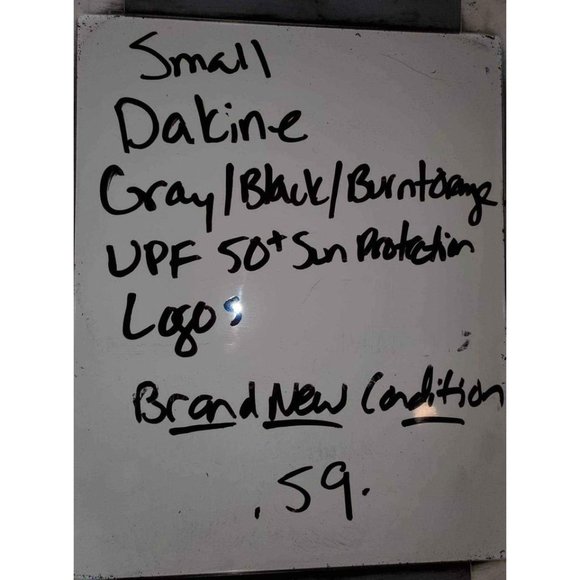 Small
Dakine
Gray/Black/Burntorange
UPF 50+ Sun Protection
Logos
Brand New Condition
.59.